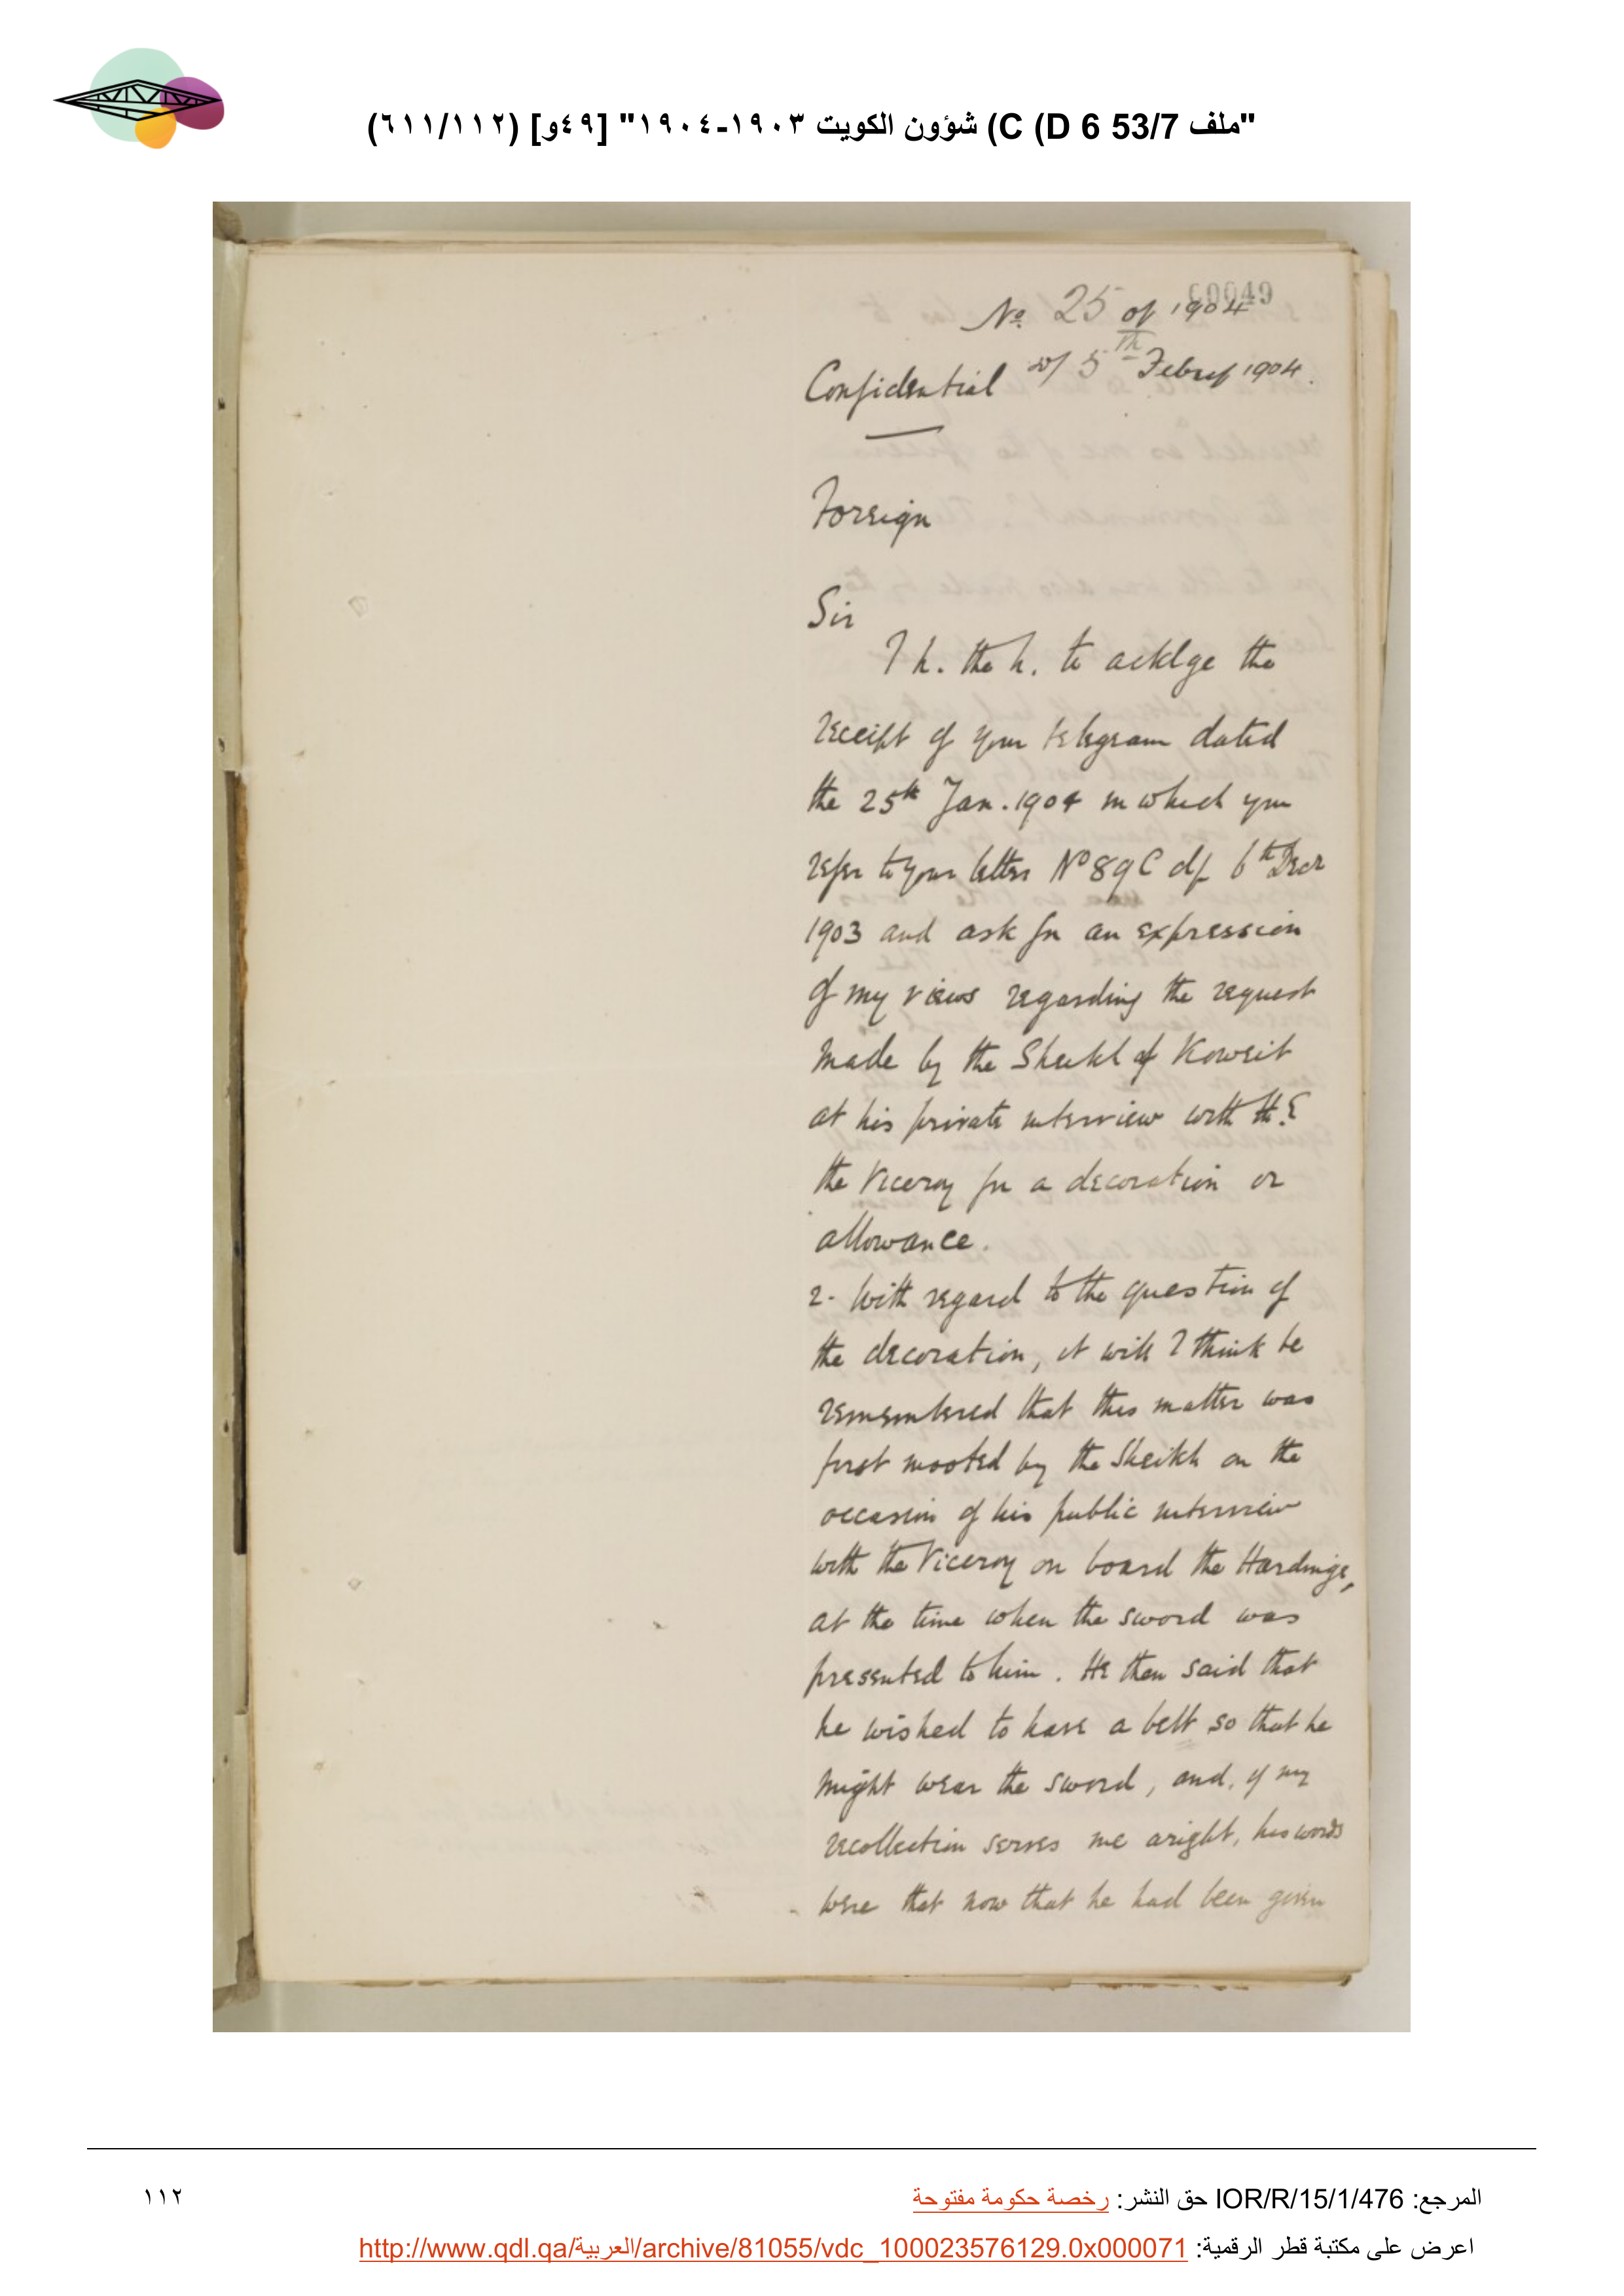 "ملف 53/7 C (D 6) شؤون الكويت ١٩٠٣-١٩٠٤" [٤٩و] (٦١١/١١٢)
00049
No. 25 of 1904
d/ 5th Febry 1904.
Confidential
Foreign
Sir
I h. the h. to acklge the
receipt of your telegram dated
the 25th Jan. 1904 in which you
refer to your letter No 89C d/ 6th Decr
1903 and ask for an expression
of my views regarding the request
made by the Sheikh of Koweit
at his private interview with H.E
the Viceroy for a decoration or
allowance.
2. With regard to the question of
the decoration, it will I think be
remembered that this matter was
first mooted by the Sheikh on the
occasion of his public interview
with the Viceroy on board the Hardinge,
at the time when the sword was
presented to him. He then said that
he wished to have a belt so that he
might wear the sword, and, if my
recollection serves me aright, his words
were that now that he had been given
المرجع: IOR/R/15/1/476 حق النشر: رخصة حكومة مفتوحة
١١٢
اعرض على مكتبة قطر الرقمية: http://www.qdl.qa/العربية/archive/81055/vdc_100023576129.0x000071